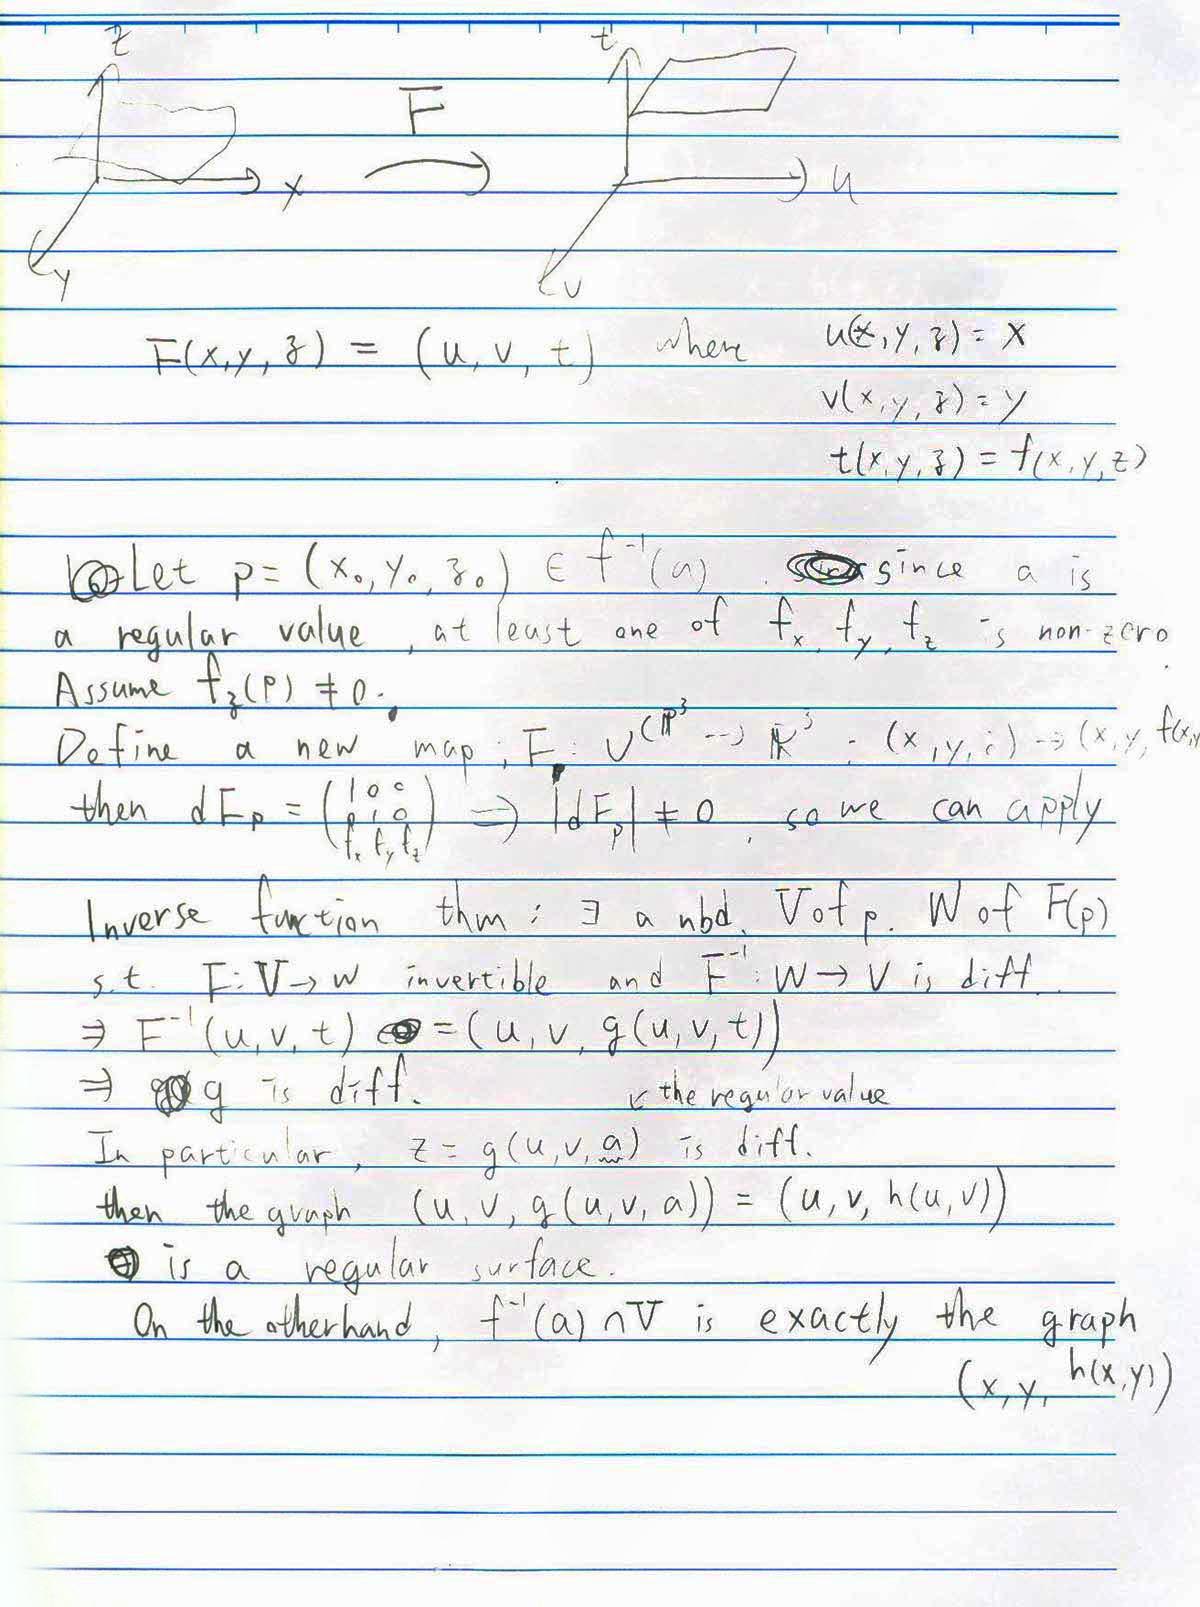 z t
F
x u
y v
F(x,y,z) = (u, v, t) where u(x,y,z) = x
v(x,y,z) = y
t(x,y,z) = f(x,y,z)
Let p = (x₀, y₀, z₀) ∈ f⁻¹(a). since a is
a regular value, at least one of fₓ, f_y, f_z is non-zero.
Assume f_z(p) ≠ 0.
Define a new map; F: U⊂ℝ³ → ℝ³ : (x,y,z) → (x,y, f(x,y
then dF_p = (1 0 0 / 0 1 0 / fₓ f_y f_z) ⇒ |dF_p| ≠ 0, so we can apply
Inverse function thm: ∃ a nbd. V of p. W of F(p)
s.t. F: V → W invertible and F⁻¹: W → V is diff.
⇒ F⁻¹(u,v,t) = (u, v, g(u,v,t))
⇒ g is diff. ↙ the regular value
In particular, z = g(u,v,a) is diff.
then the graph (u, v, g(u,v,a)) = (u, v, h(u,v))
is a regular surface.
On the otherhand, f⁻¹(a)∩V is exactly the graph
(x, y, h(x,y))